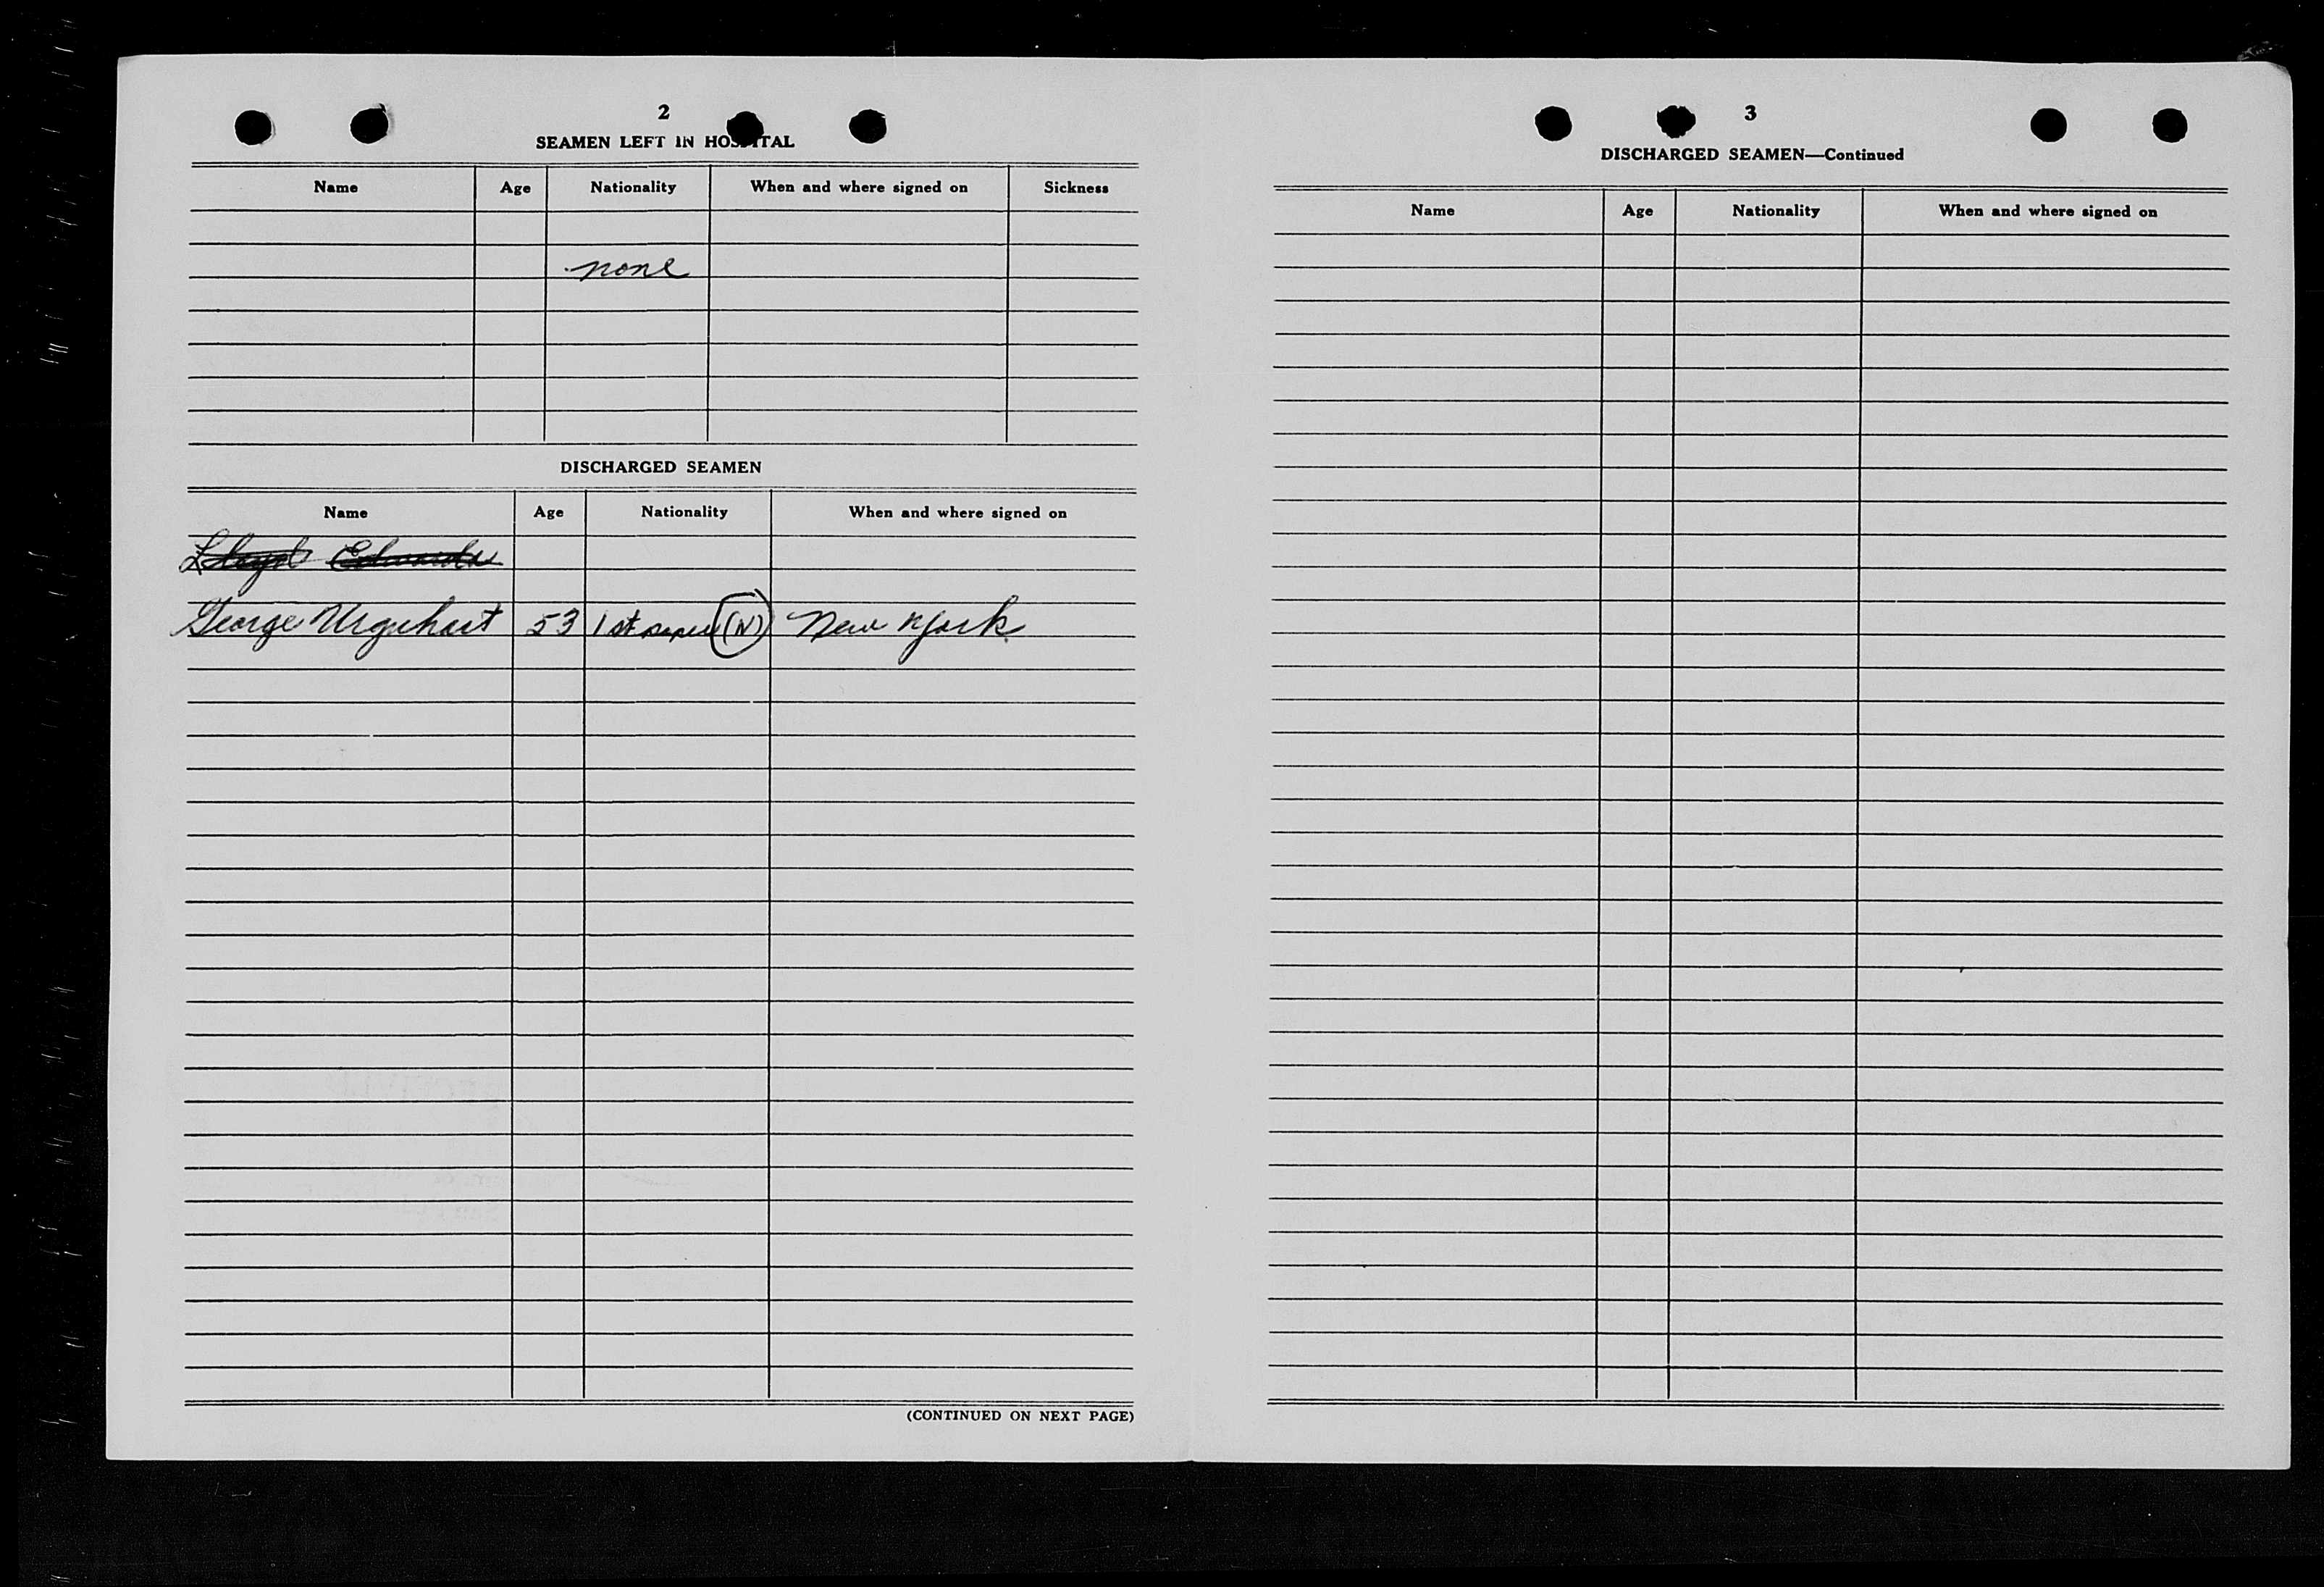 2
SEAMEN LEFT IN HOSPITAL
Name Age Nationality When and where signed on Sickness
none
DISCHARGED SEAMEN
Name Age Nationality When and where signed on
Lloyd Edwards
George Urquhart 53 1st paper (N) New York
(CONTINUED ON NEXT PAGE)
3
DISCHARGED SEAMEN—Continued
Name Age Nationality When and where signed on